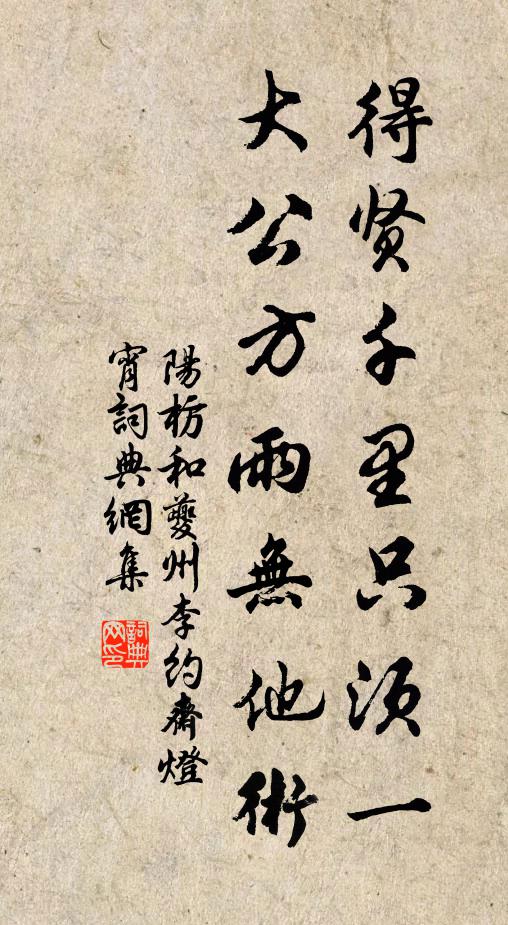 得贤千里只須一
大公方兩無他術
陽枋和夔州李約齋燈
宵詞典網集
詞典
网印